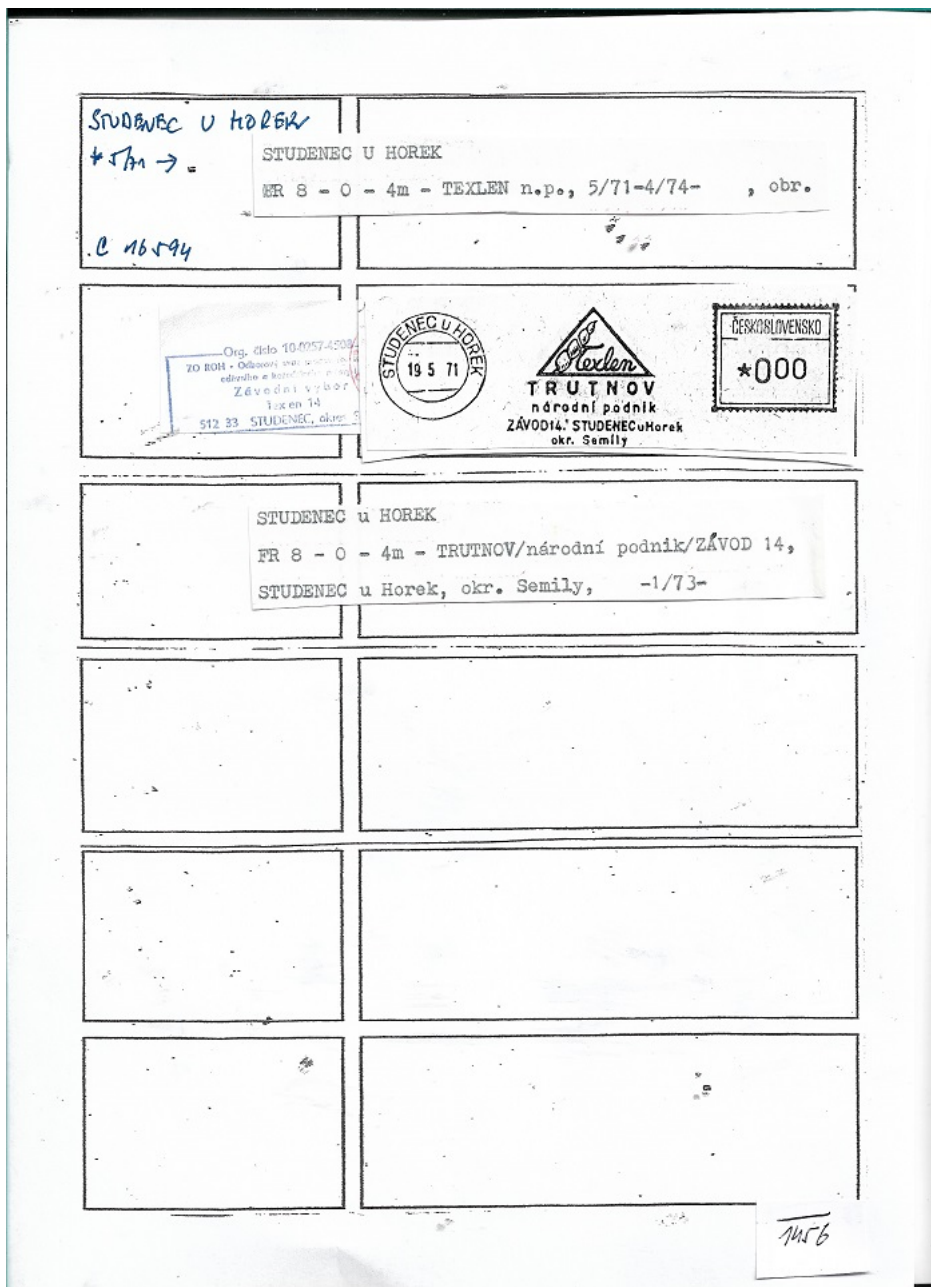 STUDENEC U HOREK
* 5/71 →
STUDENEC U HOREK
FR 8 - 0 - 4m - TEXLEN n.p., 5/71-4/74- , obr.
C 16594
Org. číslo 10-0257-4508
ZO ROH - Odborový svaz
oděvního a
Závodní výbor
Texlen 14
512 33 STUDENEC, okres
STUDENEC u HOREK
19 5 71
Texlen
TRUTNOV
národní podnik
ZÁVOD14. STUDENECuHorek
okr. Semily
ČESKOSLOVENSKO
*000
STUDENEC u HOREK
FR 8 - 0 - 4m - TRUTNOV/národní podnik/ZÁVOD 14,
STUDENEC u Horek, okr. Semily, -1/73-
1456